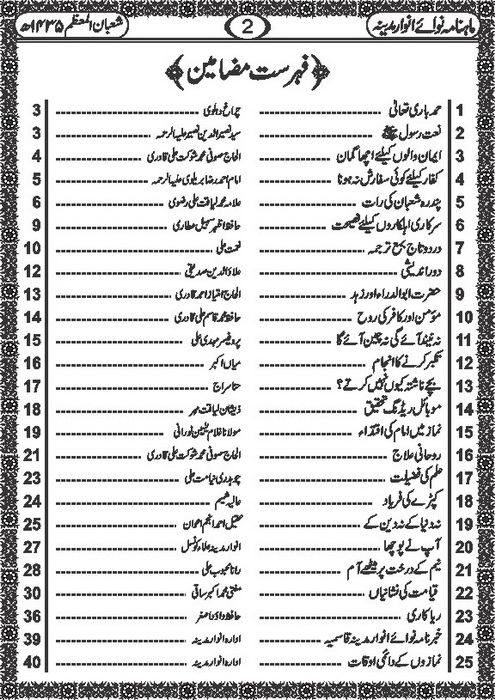 ماہنامہ نوائے انوار مدینہ 2 شعبان المعظم ۱۴۳۵ھ
﴿فہرست مضامین﴾
1 حمد باری تعالیٰ ------ چراغ دہلوی ------ 3
2 نعت رسول ﷺ ------ سید نصیر الدین نصیر علیہ الرحمہ ------ 3
3 ایمان والوں کیلئے اچھا گمان ------ الحاج صوفی محمد شوکت علی قادری ------ 4
4 کفار کیلئے کوئی سفارش نہ ہونا ------ امام احمد رضا بریلوی علیہ الرحمہ ------ 5
5 پندرہ شعبان کی رات ------ علامہ محمد لیاقت علی رضوی ------ 6
6 سرکاری اہلکاروں کیلئے نصیحت ------ حافظ اظہر سہیل عطاری ------ 9
7 درود تاج بمع ترجمہ ------ نعمت علی ------ 10
8 دور اندیشی ------ علاؤالدین صدیقی ------ 12
9 حضرت ابوالدرداء اور زہد ------ الحاج امتیاز احمد قادری ------ 13
10 مؤمن اور کافر کی روح ------ حافظ محمد قاسم علی قادری ------ 14
11 نہ نیند آئے گی نہ چین آئے گا ------ پروفیسر مہدی علی ------ 15
12 تکبر کرنے کا انجام ------ میاں اکبر ------ 16
13 بچے ناشتہ کیوں نہیں کرتے؟ ------ حنا سراج ------ 17
14 موبائل ریڈنگ تحقیق ------ ذیشان لیاقت مہر ------ 18
15 نماز میں امام کی اقتداء ------ مولانا غلام یٰسین نورانی ------ 19
16 روحانی علاج ------ الحاج صوفی محمد شوکت علی قادری ------ 21
17 حلم کی فضیلت ------ چوہدری نیامت علی ------ 23
18 کپڑے کی فریاد ------ عالیہ شمیم ------ 24
19 نہ دنیا کے نہ دین کے ------ عقیل احمد انجم اعوان ------ 25
20 آپ نے پوچھا ------ انوار مدینہ علماء کونسل ------ 27
21 نیم کے درخت پر میٹھے آم ------ رانا محبوب علی ------ 28
22 قیامت کی نشانیاں ------ مفتی محمد اکبر ساقی ------ 30
23 ریاکاری ------ حافظ داؤد اصغر ------ 36
24 خبرنامہ نوائے انوار مدینہ قاسمیہ ------ ادارہ انوار مدینہ ------ 39
25 نمازوں کے دائمی اوقات ------ ادارہ انوار مدینہ ------ 40